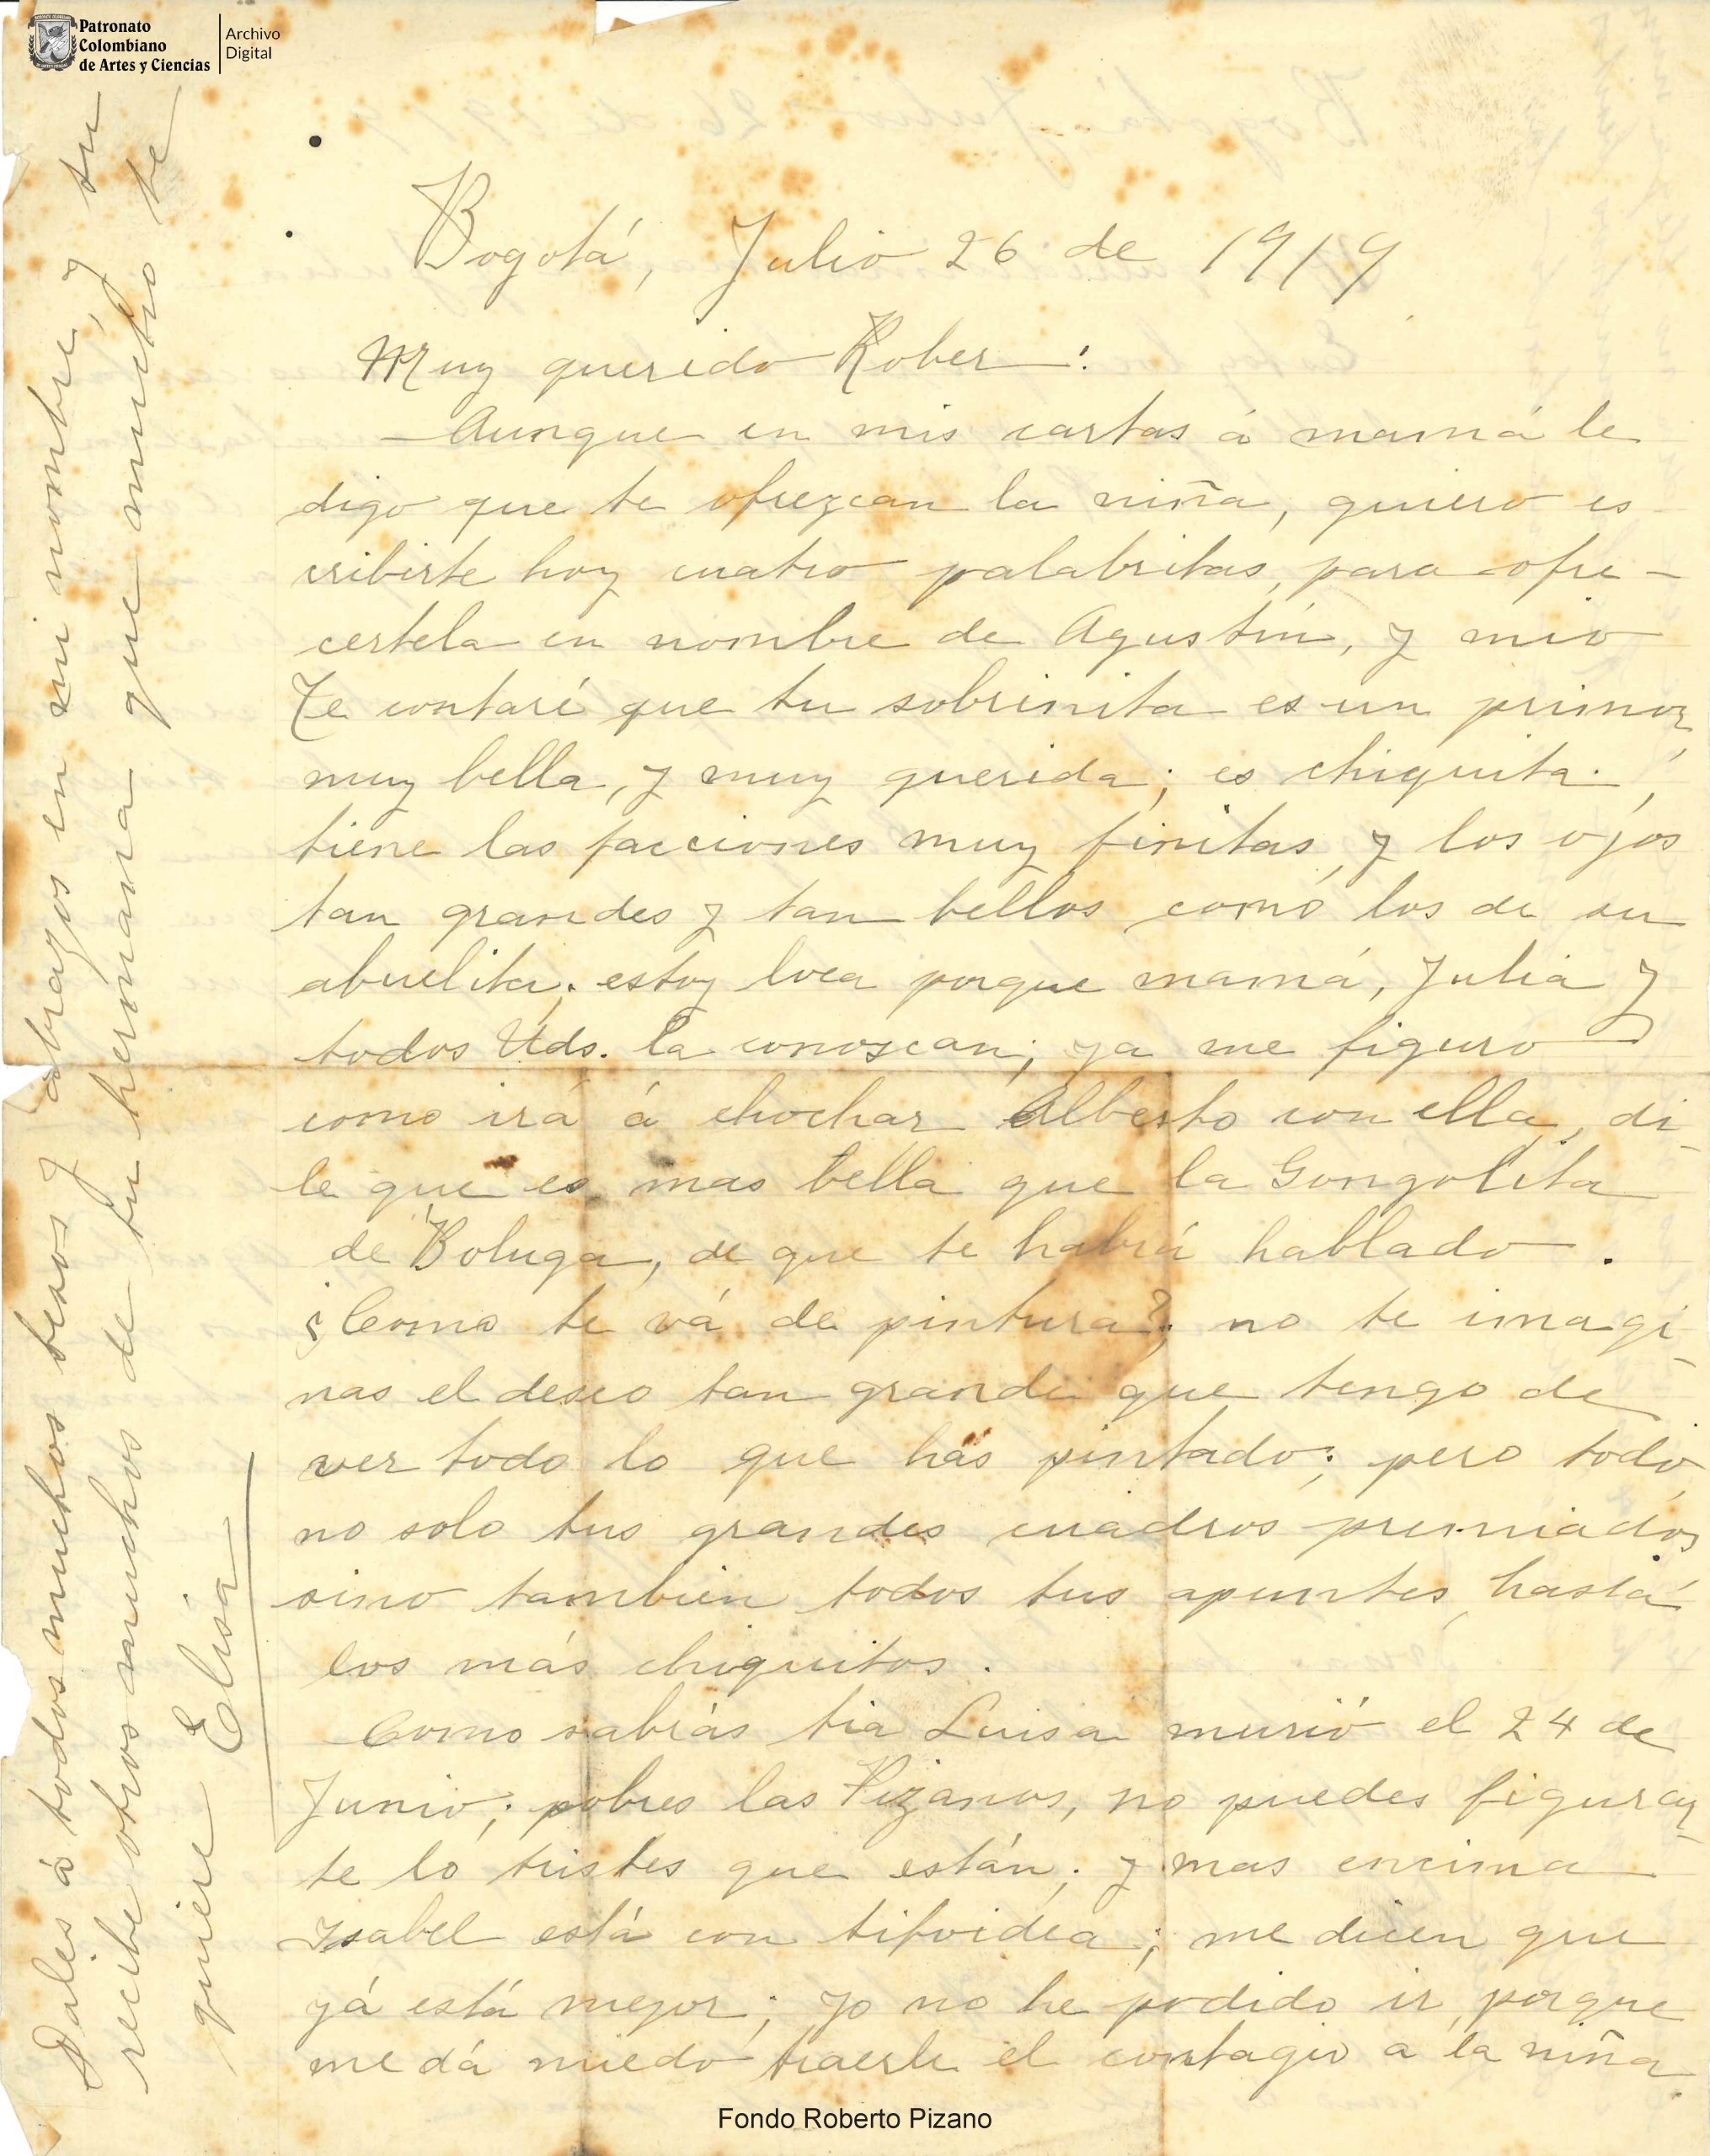 Patronato
Colombiano
de Artes y Ciencias
Archivo
Digital
Bogotá, Julio 26 de 1919
Muy querido Rober:
Aunque en mis cartas á mamá le
digo que te ofrezcan la niña, quiero es
cribirte hoy cuatro palabritas, para ofre-
certela en nombre de Agustín, y mio
Te contaré que tu sobrinita es un primor,
muy bella, y muy querida; es chiquita;
tiene las facciones muy finitas, y los ojos
tan grandes y tan bellos como los de su
abuelita; estoy loca porque mamá, Julia y
todos Uds. la conozcan; ya me figuro
como irá á chochar Alberto con ella, di-
le que es mas bella que la Gongolita
de Boluga, de que te habrá hablado.
¿Como te vá de pintura?; no te imagi-
nas el deseo tan grande que tengo de
ver todo lo que has pintado; pero todo,
no solo tus grandes cuadros premiados,
sino tambien todos tus apuntes, hasta
los más chiquitos.
Como sabrás tia Luisa murió el 24 de
Junio; pobres las Pizanos, no puedes figurar-
te lo tristes que están; y mas encima
Isabel está con tifoidea; me dicen que
yá está mejor; yo no he podido ir, porque
me dá miedo traerle el contagio a la niña.
Dales á todos muchos besos y abrazos en mi nombre, y tu
recibe otros muchos de tu hermana que mucho te
quiere Elisa
Fondo Roberto Pizano